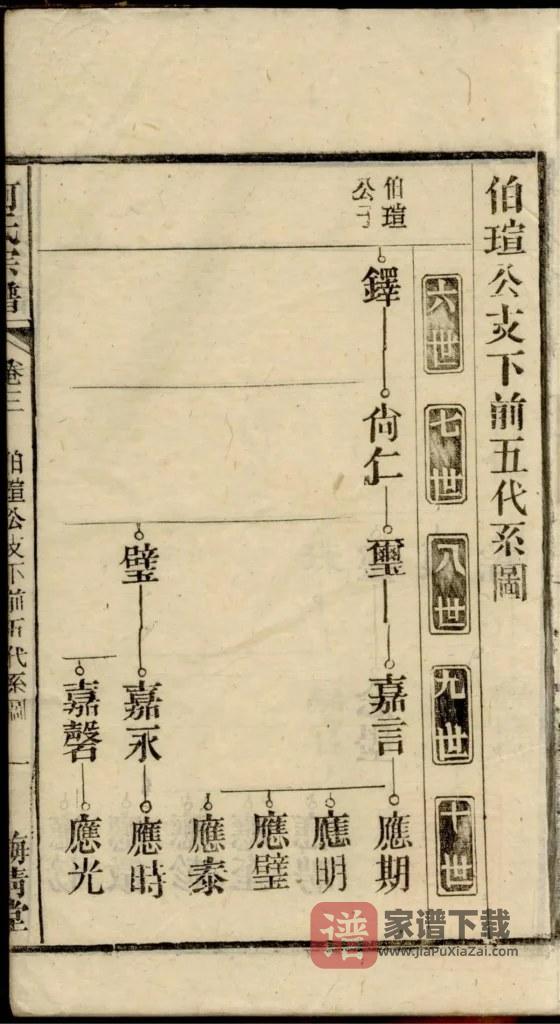 伯瑄公支下前五代系圖
六世
七世
八世
九世
十世
伯瑄
公子
鐸
尙仁
璽
嘉言
應期
應明
應璧
應泰
璧
嘉永
應時
嘉磬
應光
氏宗譜
卷三
伯瑄公支下前五代系圖
一
堂
家谱下载
www.JiaPuXiaZai.com
谱